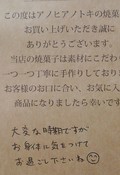 この度はアノヒアノトキの焼菓
お買い上げいただき誠に
ありがとうございます。
当店の焼菓子は素材にこだわ
一つ一つ丁寧に手作りしており
お客様のお口に合い、お気に入
商品になりましたら幸いです
大変な時期ですが
お身体に気をつけて
お過ごし下さいね